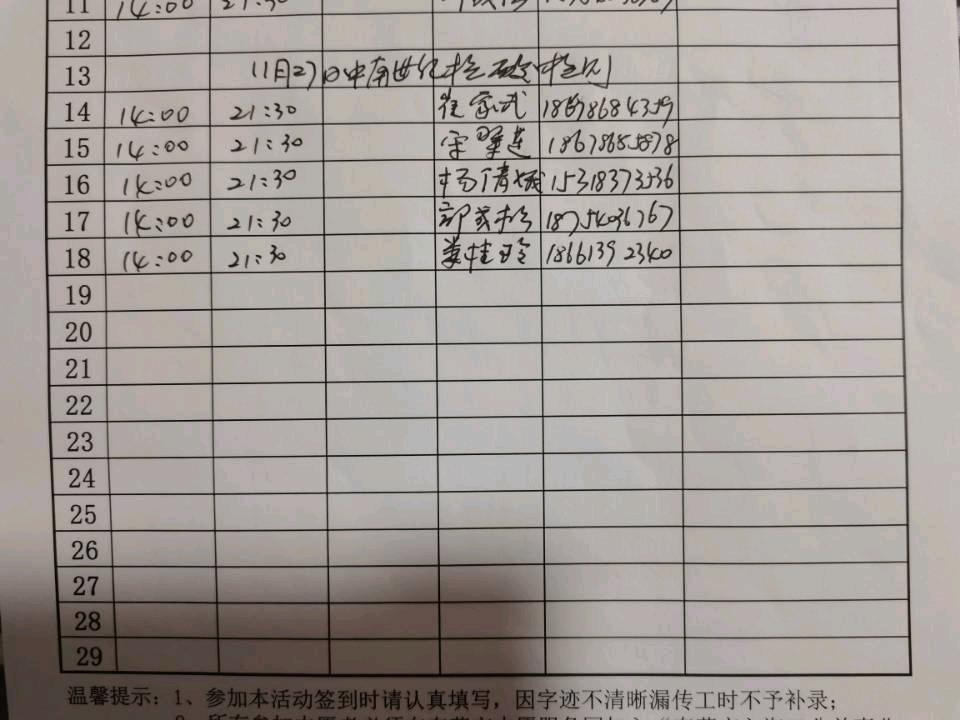 11 14:00 21:30
12
13 11月27日中南世纪核酸检测
14 14:00 21:30 崔家武 18678684359
15 14:00 21:30 宋翠莲 18678685878
16 14:00 21:30 杨倩城 15318373536
17 14:00 21:30 18754036767
18 14:00 21:30 桂玲 18661392340
19
20
21
22
23
24
25
26
27
28
29
温馨提示：1、参加本活动签到时请认真填写，因字迹不清晰漏传工时不予补录；